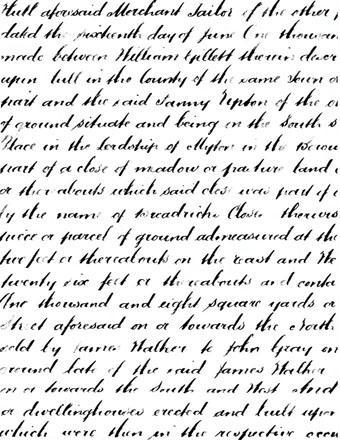 Hull aforesaid Merchant Tailor of the other p
dated the sixteenth day of June One thousan
made between William Gillett therein descr
upon Hull in the County of the same Town o
part and the said Fanny Upton of the o
of ground situate and being on the South s
Place in the Lordship of Myton in the Borou
part of a close of meadow or pasture land
or thereabouts which said close was part of
by the name of Close thereus
piece or parcel of ground admeasured at the
two feet or thereabouts on the East and We
twenty six feet or thereabouts and conta
One thousand and eight square yards or
Street aforesaid on or towards the North
sold by James Walker to John Gray on
ground late of the said James Walker
on or towards the South and West And
or dwellinghouses erected and built upon
which were then in the respective occu